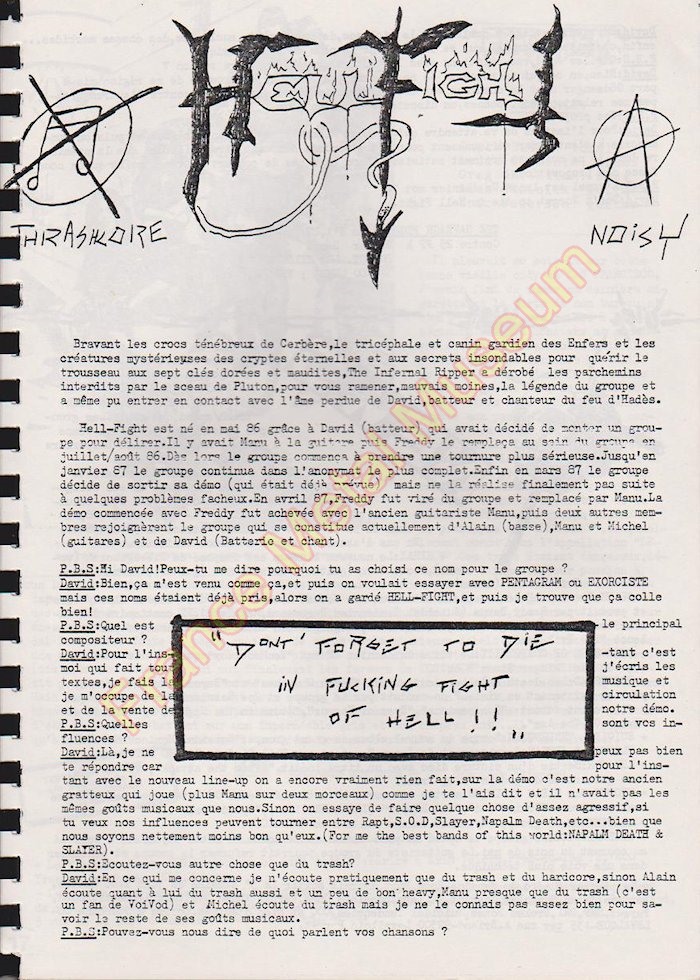 HELL FIGHT
THRASHCORE
NOISY
Bravant les crocs ténébreux de Cerbère,le tricéphale et canin gardien des Enfers et les
créatures mystérieuses des cryptes éternelles et aux secrets insondables pour quérir le
trousseau aux sept clés dorées et maudites,The Infernal Ripper a dérobé les parchemins
interdits par le sceau de Pluton,pour vous ramener,mauvais moines,la légende du groupe et
a même pu entrer en contact avec l'âme perdue de David,batteur et chanteur du feu d'Hadès.
Hell-Fight est né en mai 86 grâce à David (batteur) qui avait décidé de monter un grou-
pe pour délirer.Il y avait Manu à la guitare puis Freddy le remplaça au sein du groupe en
juillet/août 86.Dès lors le groupe commença à prendre une tournure plus sérieuse.Jusqu'en
janvier 87 le groupe continua dans l'anonymat le plus complet.Enfin en mars 87 le groupe
décide de sortir sa démo (qui était déjà prévue) mais ne la réalise finalement pas suite
à quelques problèmes facheux.En avril 87,Freddy fut viré du groupe et remplacé par Manu.La
démo commencée avec Freddy fut achevée avec l'ancien guitariste Manu,puis deux autres mem-
bres rejoignèrent le groupe qui se constitue actuellement d'Alain (basse),Manu et Michel
(guitares) et de David (Batterie et chant).
P.B.S:Hi David!Peux-tu me dire pourquoi tu as choisi ce nom pour le groupe ?
David:Bien,ça m'est venu comme ça,et puis on voulait essayer avec PENTAGRAM ou EXORCISTE
mais ces noms étaient déjà pris,alors on a gardé HELL-FIGHT,et puis je trouve que ça colle
bien!
P.B.S:Quel est le principal
compositeur ?
David:Pour l'ins- -tant c'est
moi qui fait tout j'écris les
textes,je fais la musique et
je m'occupe de la circulation
et de la vente de notre démo.
P.B.S:Quelles sont vos in-
fluences ?
David:Là,je ne peux pas bien
te répondre car pour l'ins-
"DONT' FORGET TO DIE
IN FUCKING FIGHT
OF HELL!!"
tant avec le nouveau line-up on a encore vraiment rien fait,sur la démo c'est notre ancien
gratteux qui joue (plus Manu sur deux morceaux) comme je te l'ais dit et il n'avait pas les
mêmes goûts musicaux que nous.Sinon on essaye de faire quelque chose d'assez agressif,si
tu veux nos influences peuvent tourner entre Rapt,S.O.D,Slayer,Napalm Death,etc...bien que
nous soyons nettement moins bon qu'eux.(For me the best bands of this world:NAPALM DEATH &
SLAYER).
P.B.S:Ecoutez-vous autre chose que du trash?
David:En ce qui me concerne je n'écoute pratiquement que du trash et du hardcore,sinon Alain
écoute quant à lui du trash aussi et un peu de bon heavy,Manu presque que du trash (c'est
un fan de VoiVod) et Michel écoute du trash mais je ne le connais pas assez bien pour sa-
voir le reste de ses goûts musicaux.
P.B.S:Pouvez-vous nous dire de quoi parlent vos chansons ?
France Metal Museum